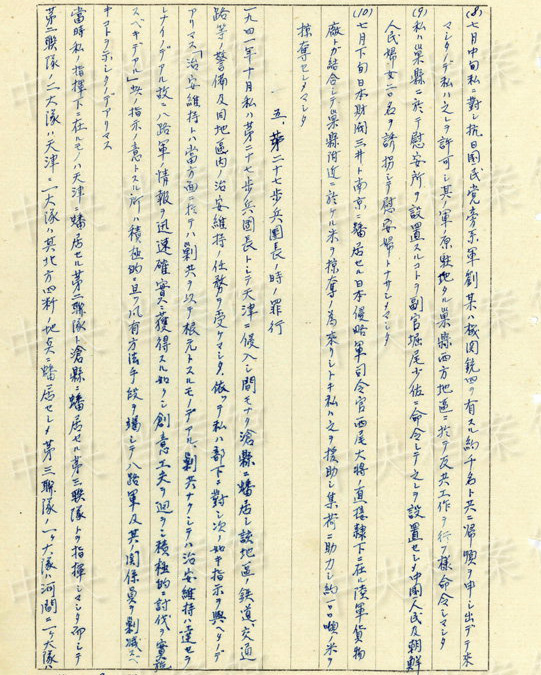 (8)七月中旬私ニ対シ抗日国民党旁系軍劉某ハ機関銃四ヲ有スル約千名ト共ニ帰順ヲ申シ出デテ来
マシタノデ私ハ之レヲ許可シ其ノ軍ノ原駐地タル巣縣西方地區ニ於テ反共工作ヲ行フ様命令シマシタ
(9)私ハ巣縣ニ於テ慰安所ヲ設置スルコトヲ副官堀尾少佐ニ命令シテ之レヲ設置セシメ中国人民及朝鮮
人民婦女二〇名ヲ誘拐シテ慰安婦トナサシメマシタ
(10)七月下旬日本財閥三井ト南京ニ蟠居セル日本侵略軍司令官西尾大将ノ直接隷下ニ在ル陸軍貨物
廠トガ結合シテ巣縣附近ニ於ケル米ヲ掠奪ノ為来リシトキ私ハ之ヲ援助シ集荷ニ助力シ約 噸ノ米ヲ
掠奪セシメマシタ
五、第二十七歩兵團長ノ時ノ罪行
一九四一年十月私ハ第二十七歩兵團長トシテ天津ニ侵入シ間モナク滄縣ニ蟠居シ該地區ノ鉄道、交通
路等ノ警備及同地區内ノ治安維持ノ任務ヲ受ケマシタ、依ツテ私ハ部下ニ對シ次ノ如キ指示ヲ與ヘタノデ
アリマス「治安維持ハ當方面ニ於テハ剿共ヲ以テ根元トスルモノデアル、剿共ナクシテハ治安維持ハ達セラ
レナイノデアル故ニ八路軍ノ情報ヲ迅速確実ニ獲得スル如クシ創意工夫ヲ廻ラシ積極的ニ討伐ヲ實施
スベキデアル」此ノ指示ノ意トスル所ハ積極的且ツ凡有方法手段ヲ竭シテ八路軍及其ノ関係員ヲ剿滅スベ
キコトヲ示シタノデアリマス
當時私ノ指揮下ニ在ルモノハ天津ニ蟠居セル第二聯隊ト滄縣ニ蟠居セル第三聯隊トヲ指揮シマシタ而シテ
第二聯隊ノ二大隊ハ天津ニ一大隊ハ其北方四 ノ地点ニ蟠居セシメ第三聯隊ノ一ケ大隊ハ河間ニ一ケ大隊ハ